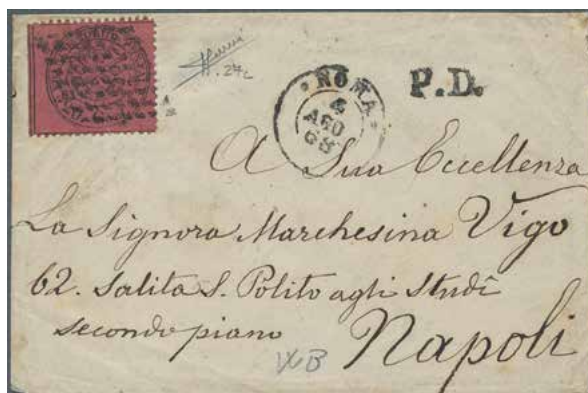 ROMA
4
AGO
68
P.D.
A Sua Eccellenza
La Signora Marchesina Vigo
62. Salita S. Polito agli Studî
secondo piano
Napoli